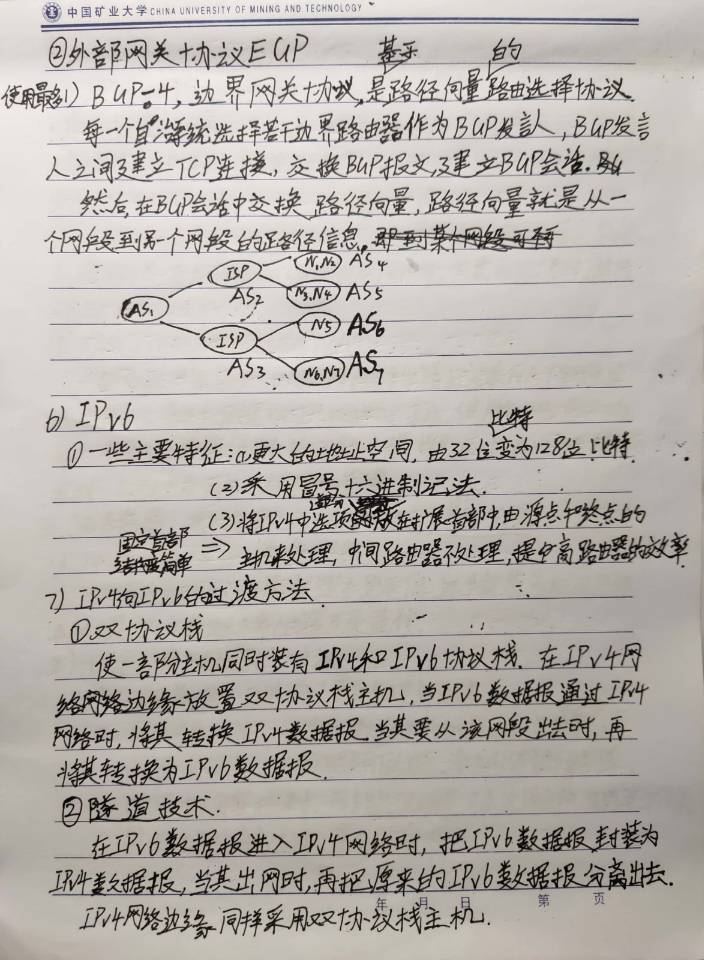 中国矿业大学 CHINA UNIVERSITY OF MINING AND TECHNOLOGY
②外部网关协议EGP
基于 的
使用最多1) BGP-4,边界网关协议,是路径向量路由选择协议.
每一个自治系统选择若干边界路由器作为BGP发言人,BGP发言
人之间建立TCP连接,交换BGP报文,建立BGP会话.
然后,在BGP会话中交换 路径向量,路径向量就是从一
个网段到另一个网段的路径信息.即到某个网段可
ISP N1,N2 AS4
AS1 AS2 N3,N4 AS5
ISP N5 AS6
AS3 N6,N7 AS7
6) IPv6
比特
①一些主要特征:a更大的地址空间,由32位变为128位比特.
(2)采用冒号十六进制记法.
(3)将IPv4中选项放在扩展首部中,由源点和终点的
固定首部
结构更简单 ⇒ 主机来处理,中间路由器不处理,提高路由器的效率
7) IPv4向IPv6的过渡方法.
①双协议栈
使一部分主机同时装有IPv4和IPv6协议栈.在IPv4网
络网络边缘放置双协议栈主机,当IPv6数据报通过IPv4
网络时,将其转换IPv4数据报.当其要从该网段出去时,再
将其转换为IPv6数据报.
②隧道技术.
在IPv6数据报进入IPv4网络时,把IPv6数据报封装为
IPv4数据报,当其出网时,再把原来的IPv6数据报分离出去.
年 月 日 第 页
IPv4网络边缘同样采用双协议栈主机.